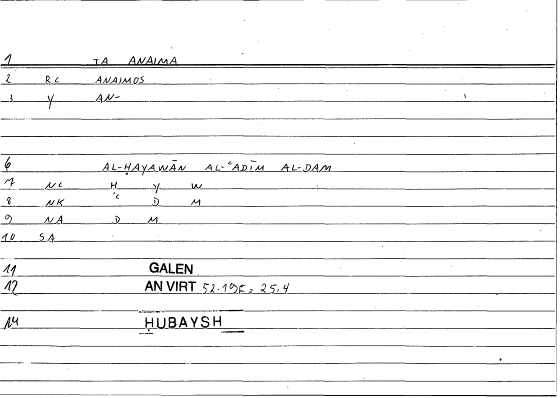 1 TA ANAIMA
2 RC ANAIMOS
3 Y AN-
6 AL-ḤAYAWĀN AL-ʿADĪM AL-DAM
7 NC Ḥ Y W
8 NK ʿ D M
9 NA D M
10 SA
11 GALEN
12 AN VIRT 25.4
14 ḤUBAYSH